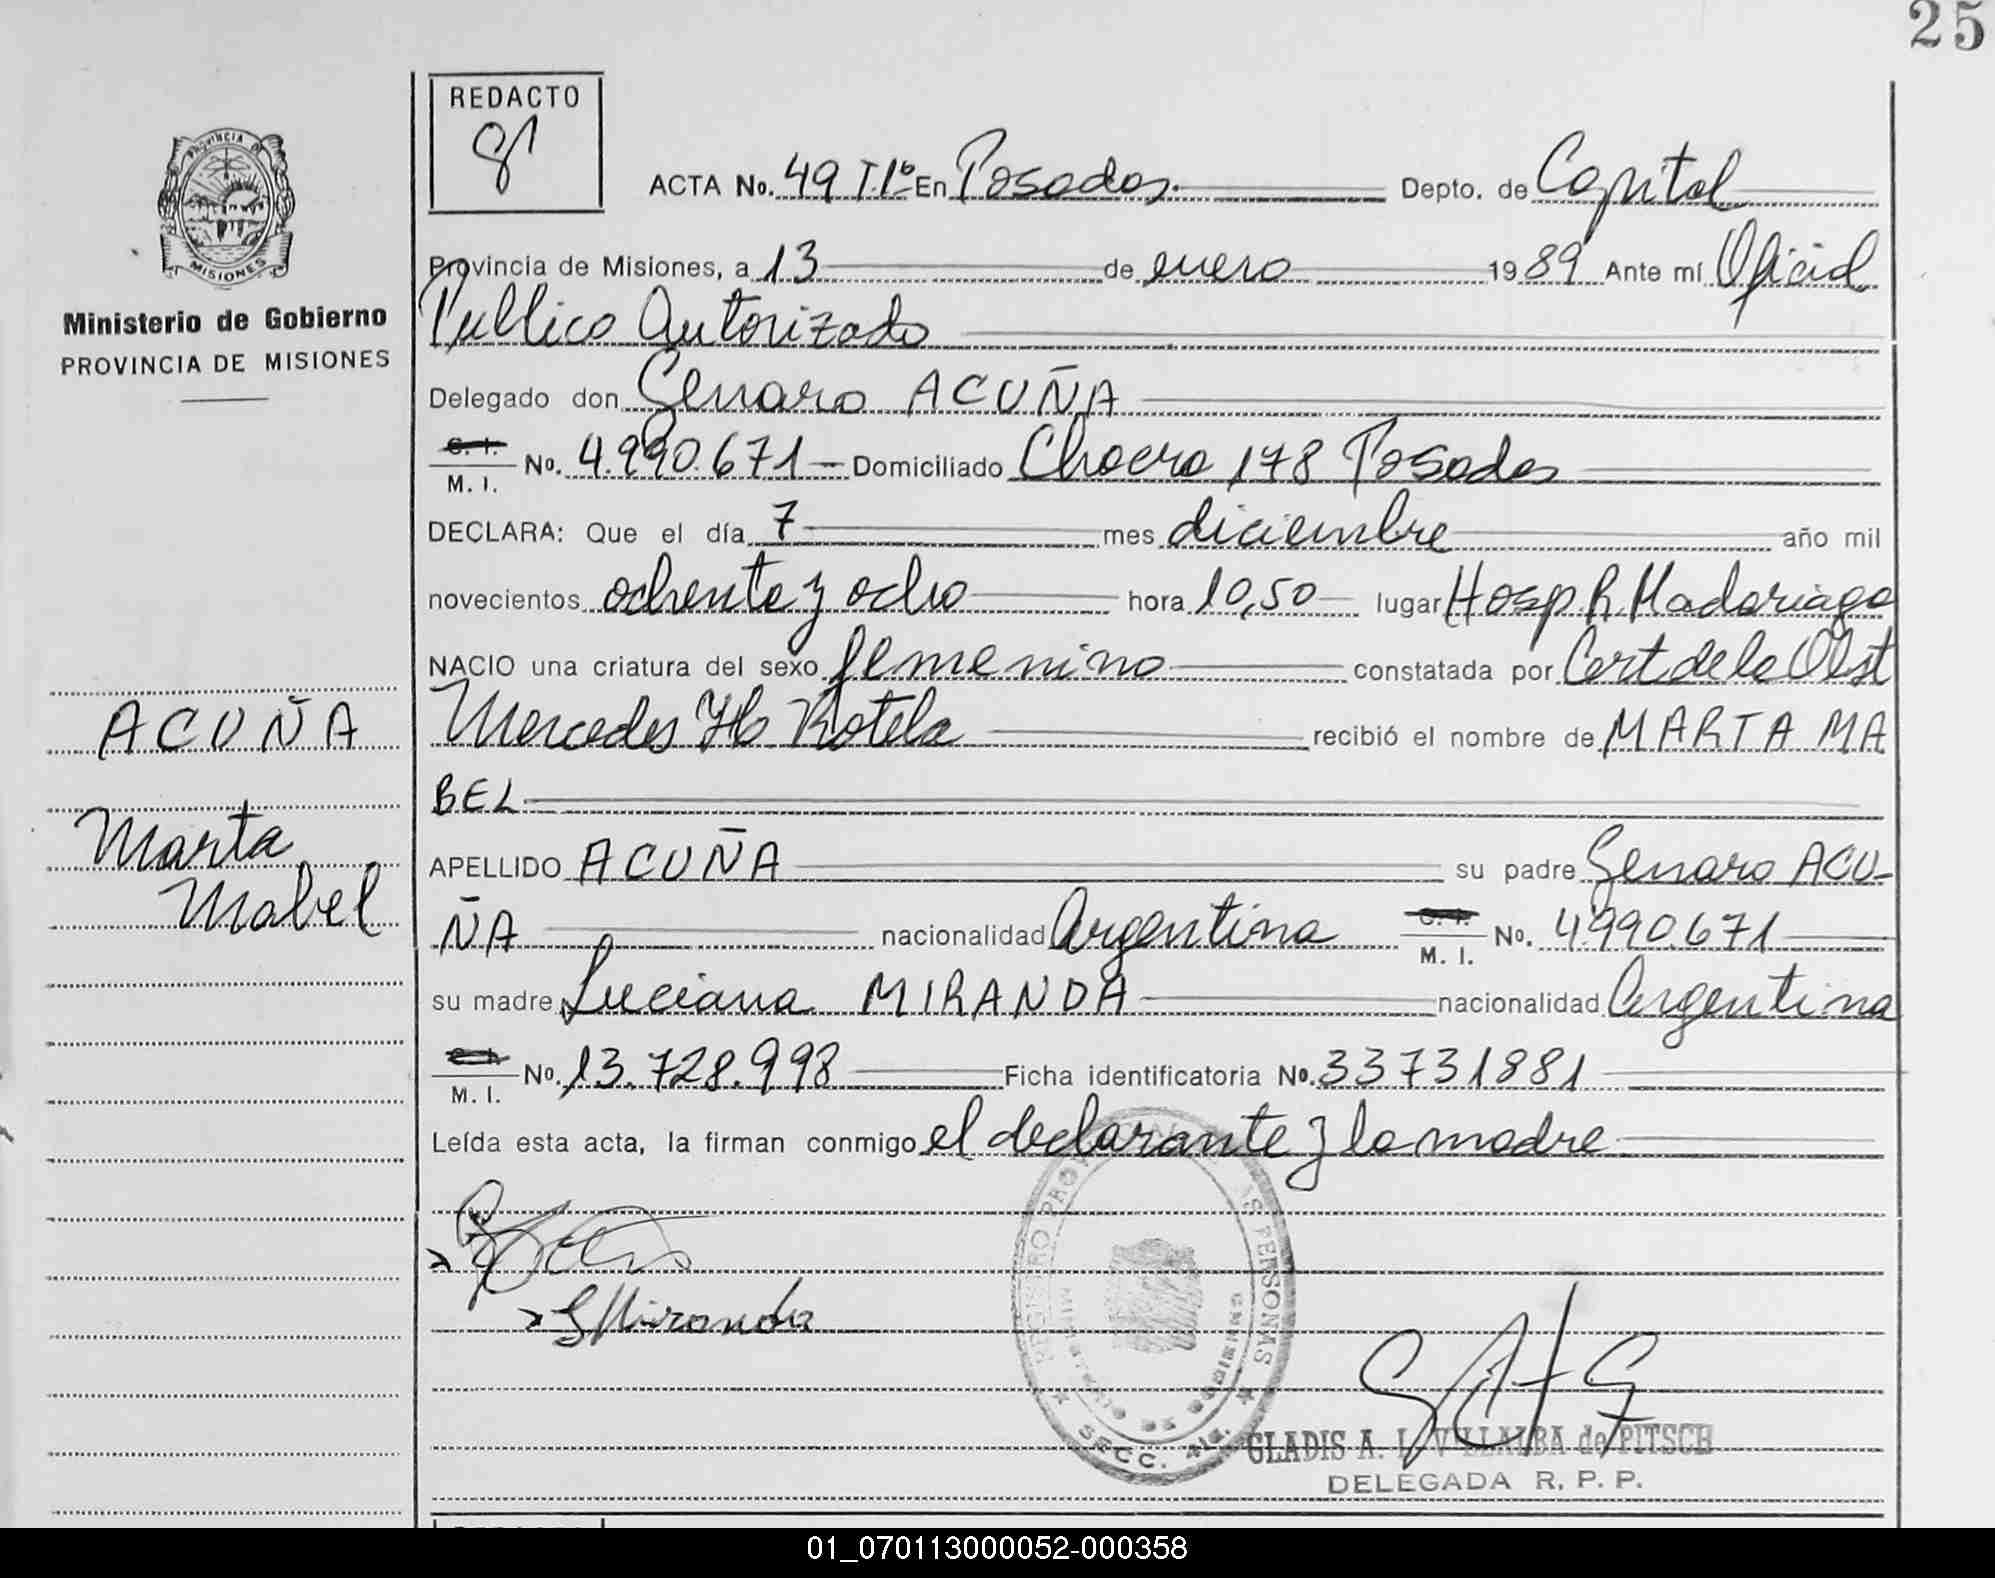 25
REDACTO
ACTA No. 49 T.1º En Posadas. Depto. de Capital
PROVINCIA DE
MISIONES
Provincia de Misiones, a 13 de enero 1989 Ante mí Oficial
Publico Autorizado
Ministerio de Gobierno
PROVINCIA DE MISIONES
Delegado don Genaro ACUÑA
C. I.
M. I. No. 4.990.671 Domiciliado Chacra 178 Posadas
DECLARA: Que el día 7 mes diciembre año mil
novecientos ochenta y ocho hora 10,50 lugar Hosp R. Madariaga
NACIO una criatura del sexo femenino constatada por Cert de la Obst
Mercedes H Rotela recibió el nombre de MARTA MA
BEL
ACUÑA
Marta
Mabel
APELLIDO ACUÑA su padre Genaro ACU-
ÑA nacionalidad Argentina C. I. M. I. No. 4.990.671
su madre Luciana MIRANDA nacionalidad Argentina
C. I.
M. I. No. 13.728.998 Ficha identificatoria No. 33731881
Leída esta acta, la firman conmigo el declarante y la madre
LMiranda
REGISTRO PROVINCIAL DE LAS PERSONAS
MINISTERIO DE GOBIERNO
SECC. 4ta.
GLADIS A. I. VILLALBA de PITSCH
DELEGADA R. P. P.
01_070113000052-000358